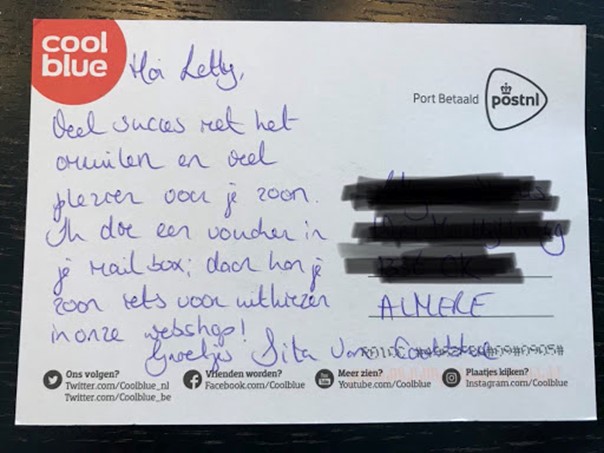 cool
blue
Hoi Letty,
Port Betaald
postnl
Veel succes met het
omruilen en veel
plezier voor je zoon.
Ik doe een voucher in
je mailbox; daar kan je
zoon iets voor uitkiezen
in onze webshop!
ALMERE
Groetjes Sita van Coolblue
Ons volgen?
Twitter.com/Coolblue_nl
Twitter.com/Coolblue_be
Vrienden worden?
Facebook.com/Coolblue
Meer zien?
Youtube.com/Coolblue
Plaatjes kijken?
Instagram.com/Coolblue